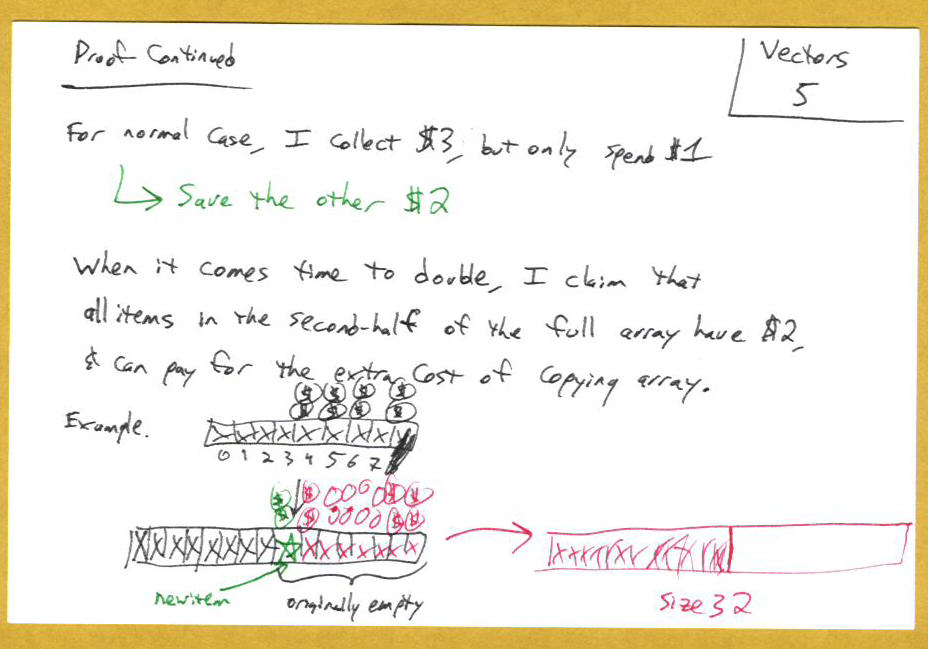 Proof Continued
Vectors
5
For normal case, I collect $3, but only spend $1
Save the other $2
When it comes time to double, I claim that
all items in the second-half of the full array have $2,
& can pay for the extra cost of copying array.
Example.
0 1 2 3 4 5 6 7
new item
originally empty
size 32